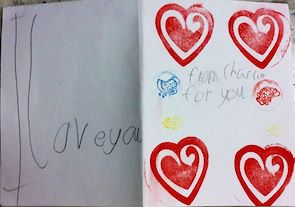 I love you
from Charlie
for you